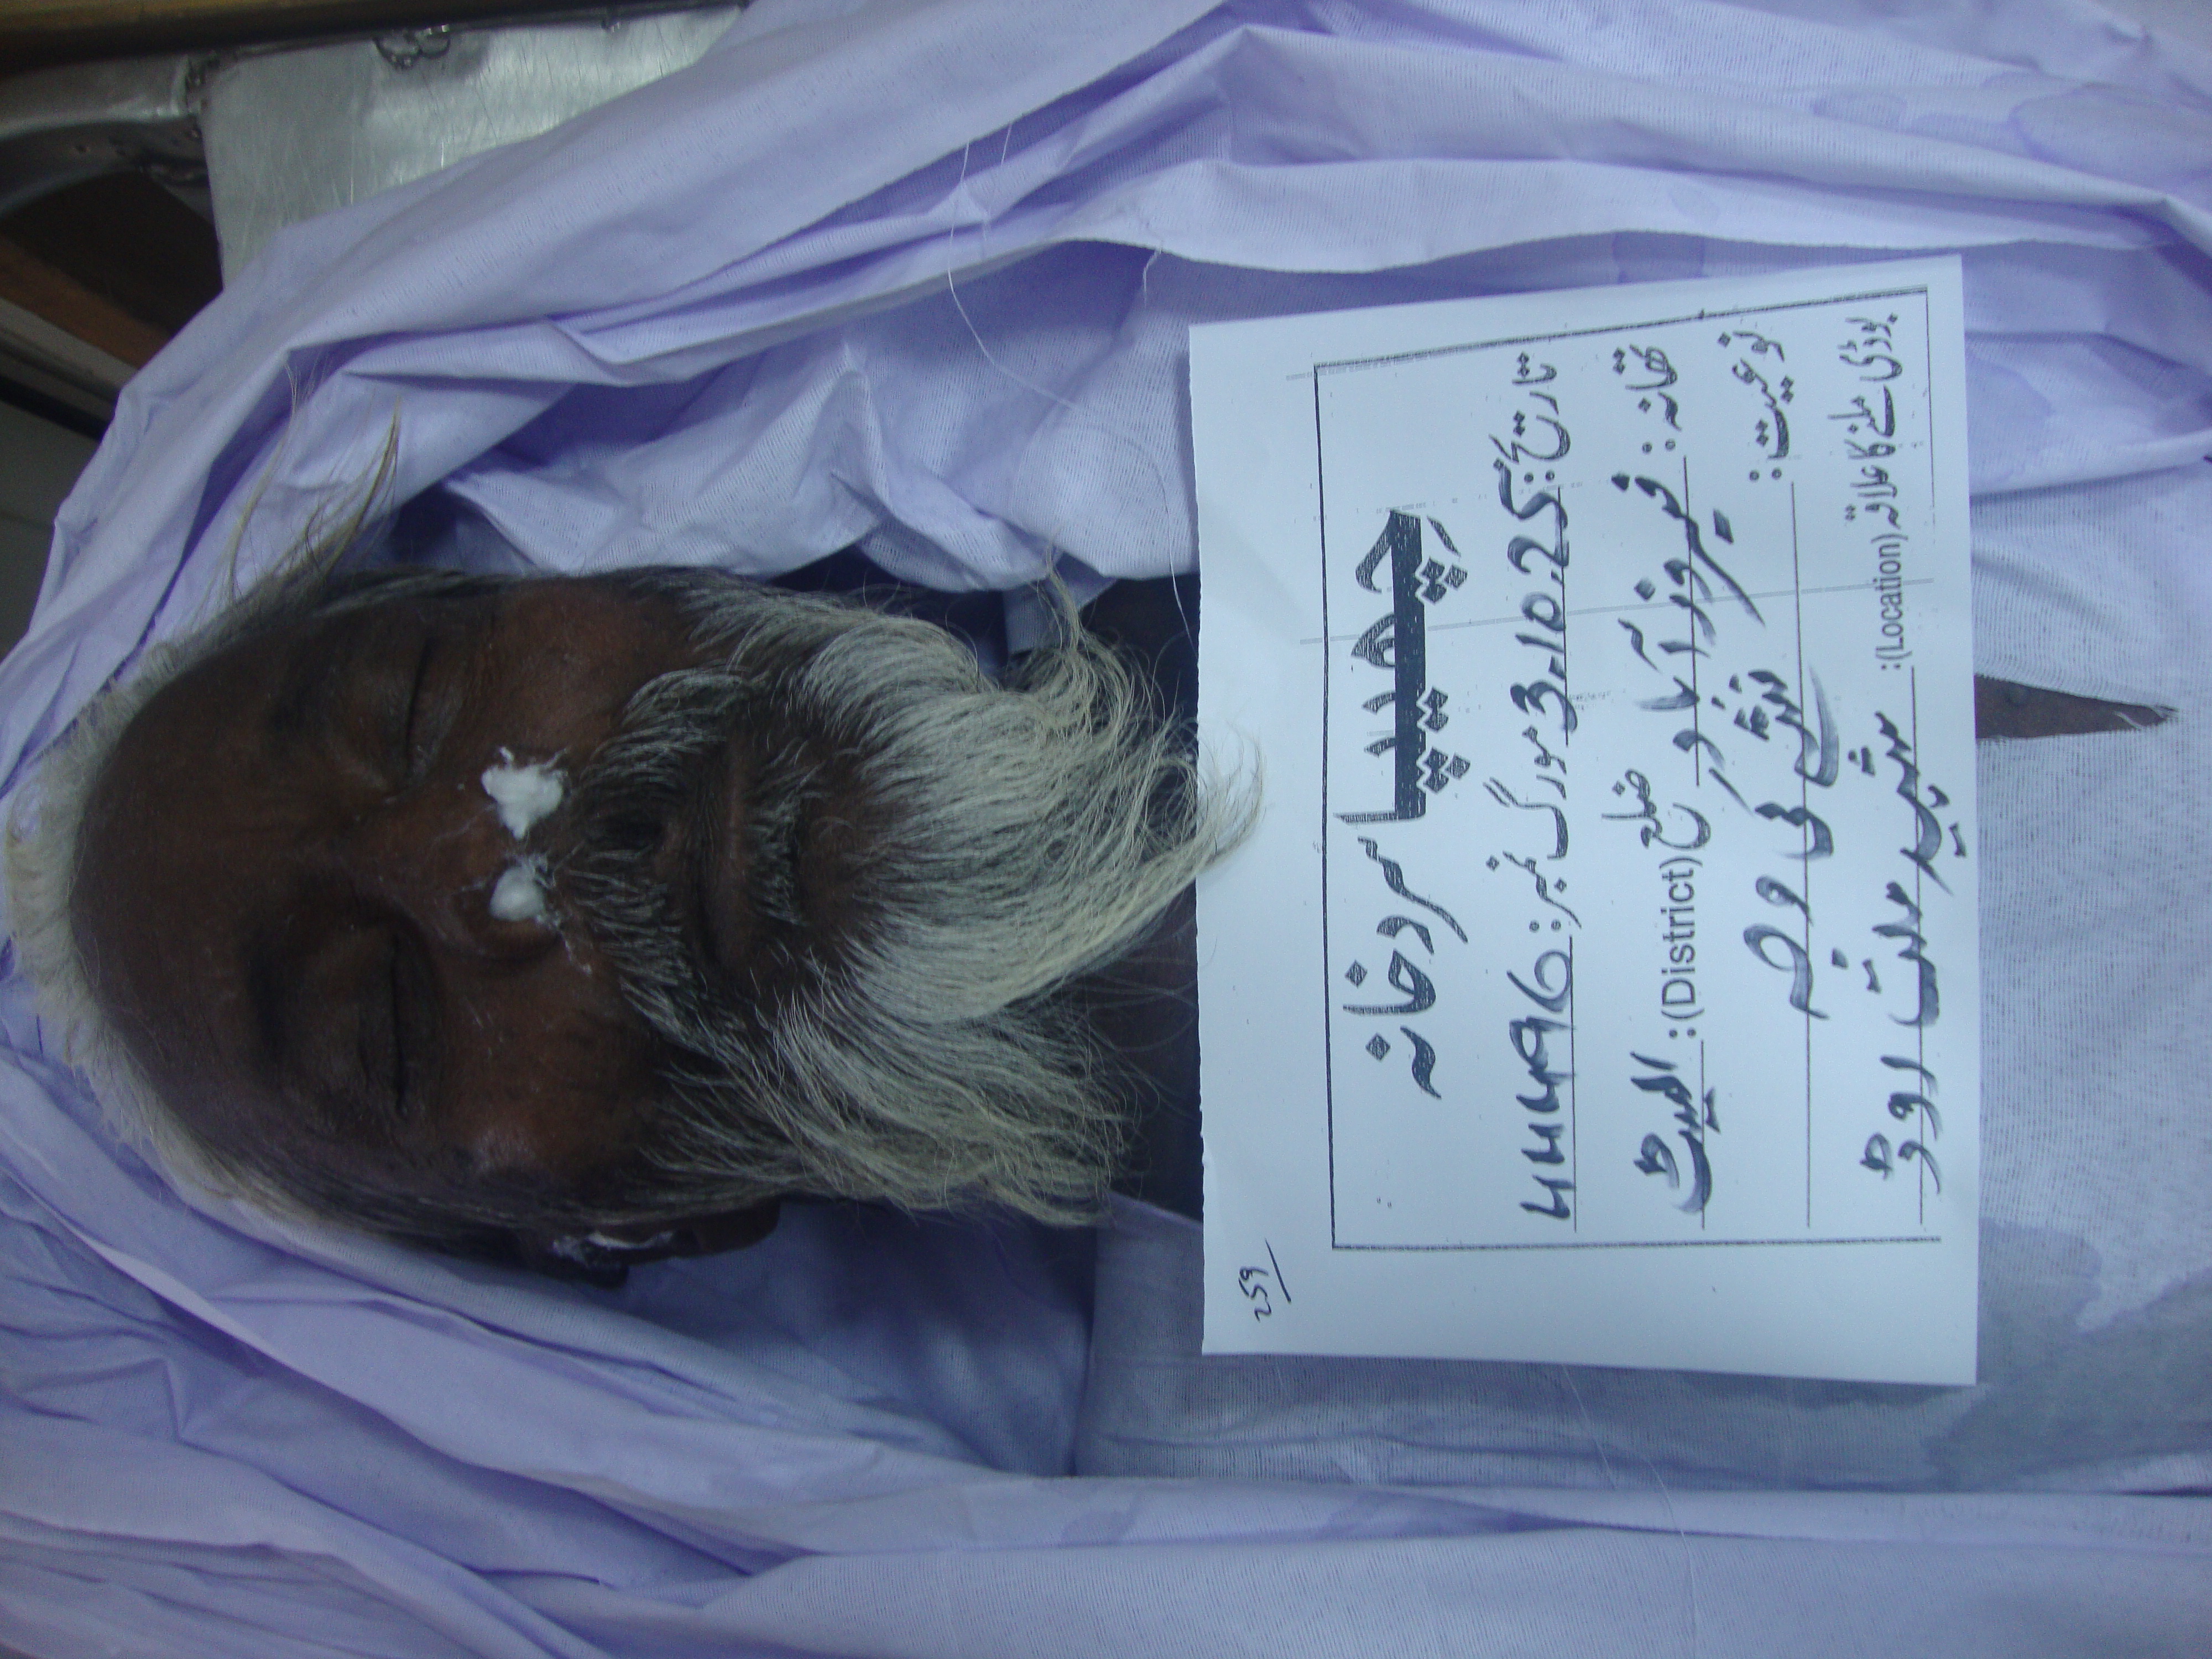 259
چھیپا سردخانہ
تاریخ: 3.10.25 مورگ نمبر: 44496
تھانہ: فیروز آباد ضلع (District): ایسٹ
نوعیت: نشے کی وجہ
بوڈی ملنے کا علاقہ (Location): شہید ملت روڈ